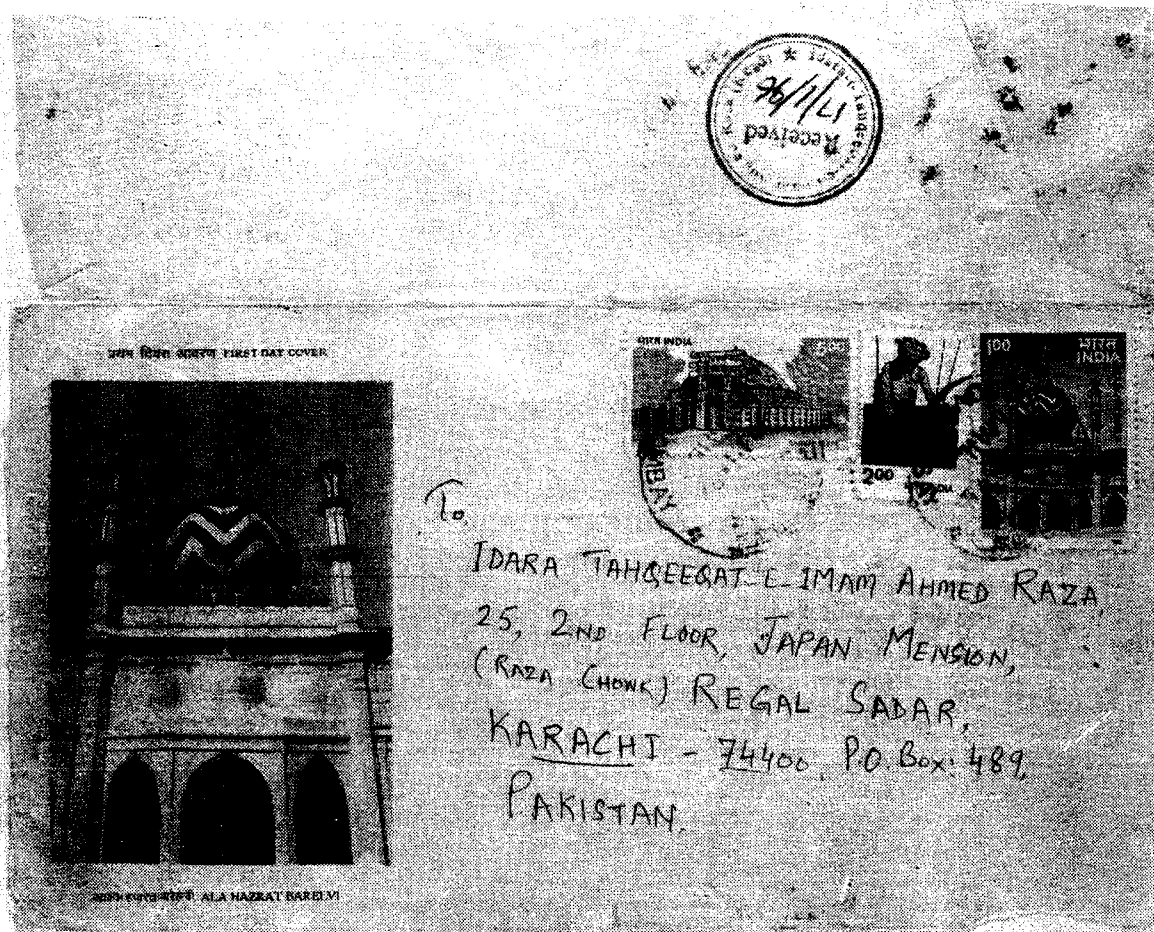 Received
17/1/96
प्रथम दिवस आवरण FIRST DAY COVER
भारत INDIA
2.00
100 भारत
INDIA
To,
IDARA TAHQEEQAT-E-IMAM AHMED RAZA,
25, 2ND FLOOR, JAPAN MENSION,
(RAZA CHOWK) REGAL SADAR,
KARACHI - 74400, P.O. Box: 489,
PAKISTAN.
ALA HAZRAT BARELVI